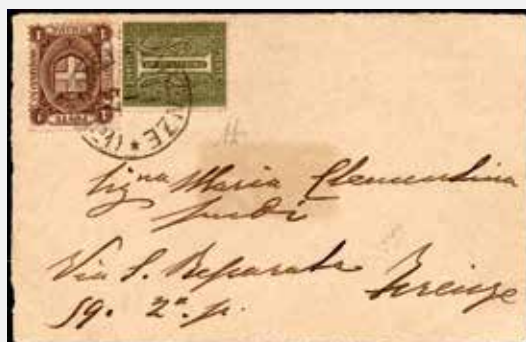 1 1
1 1
1
NZE * (
Sig.na Maria Clementina
Via S. Reparata
Firenze
59. 2°. p.